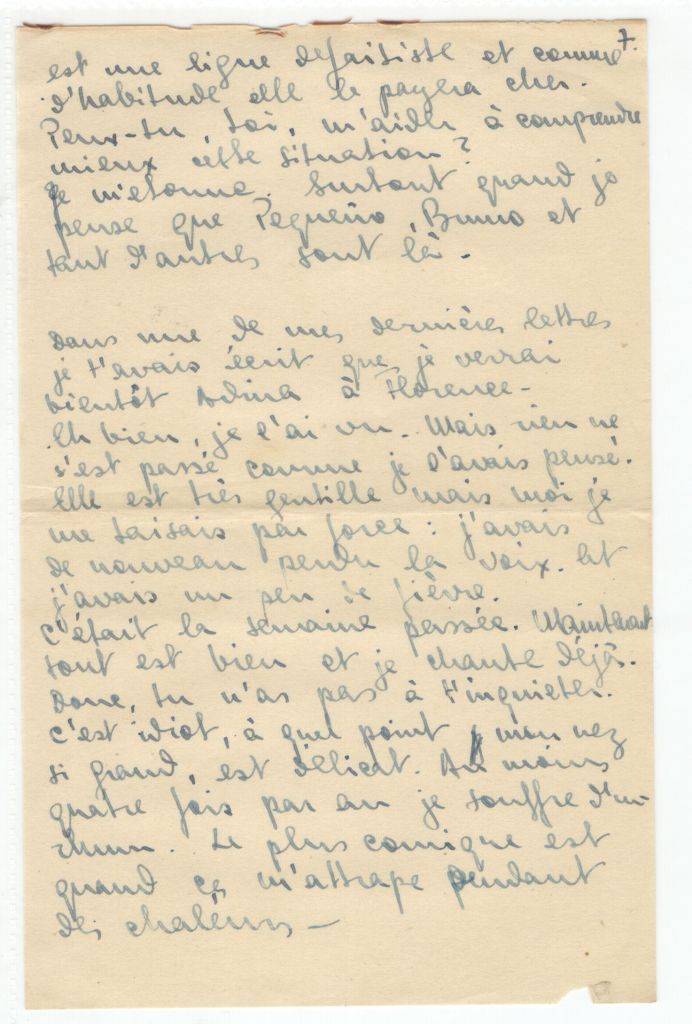 7.
est une ligne défaitiste et comme
d'habitude elle le payera cher.
Peux-tu, toi, m'aider à comprendre
mieux cette situation?
Je m'étonne. Surtout quand je
pense que Pequeño, Bruno et
tant d'autres sont là.
Dans une de mes dernières lettres
je t'avais écrit que je verrai
bientôt Adina à Florence -
Eh bien, je l'ai vu. Mais rien ne
s'est passé comme je l'avais pensé.
Elle est très gentille mais moi je
me taisais par force : j'avais
de nouveau perdu la voix. Et
j'avais un peu de fièvre.
C'était la semaine passée. Maintenant
tout est bien et je chante déjà.
Donc, tu n'as pas à t'inquieter.
C'est idiot, à quel point mon nez
si grand, est délicat. Au moins
quatre fois par an je souffre d'un
rhum. Le plus comique est
quand ça m'attrape pendant
des chaleurs -